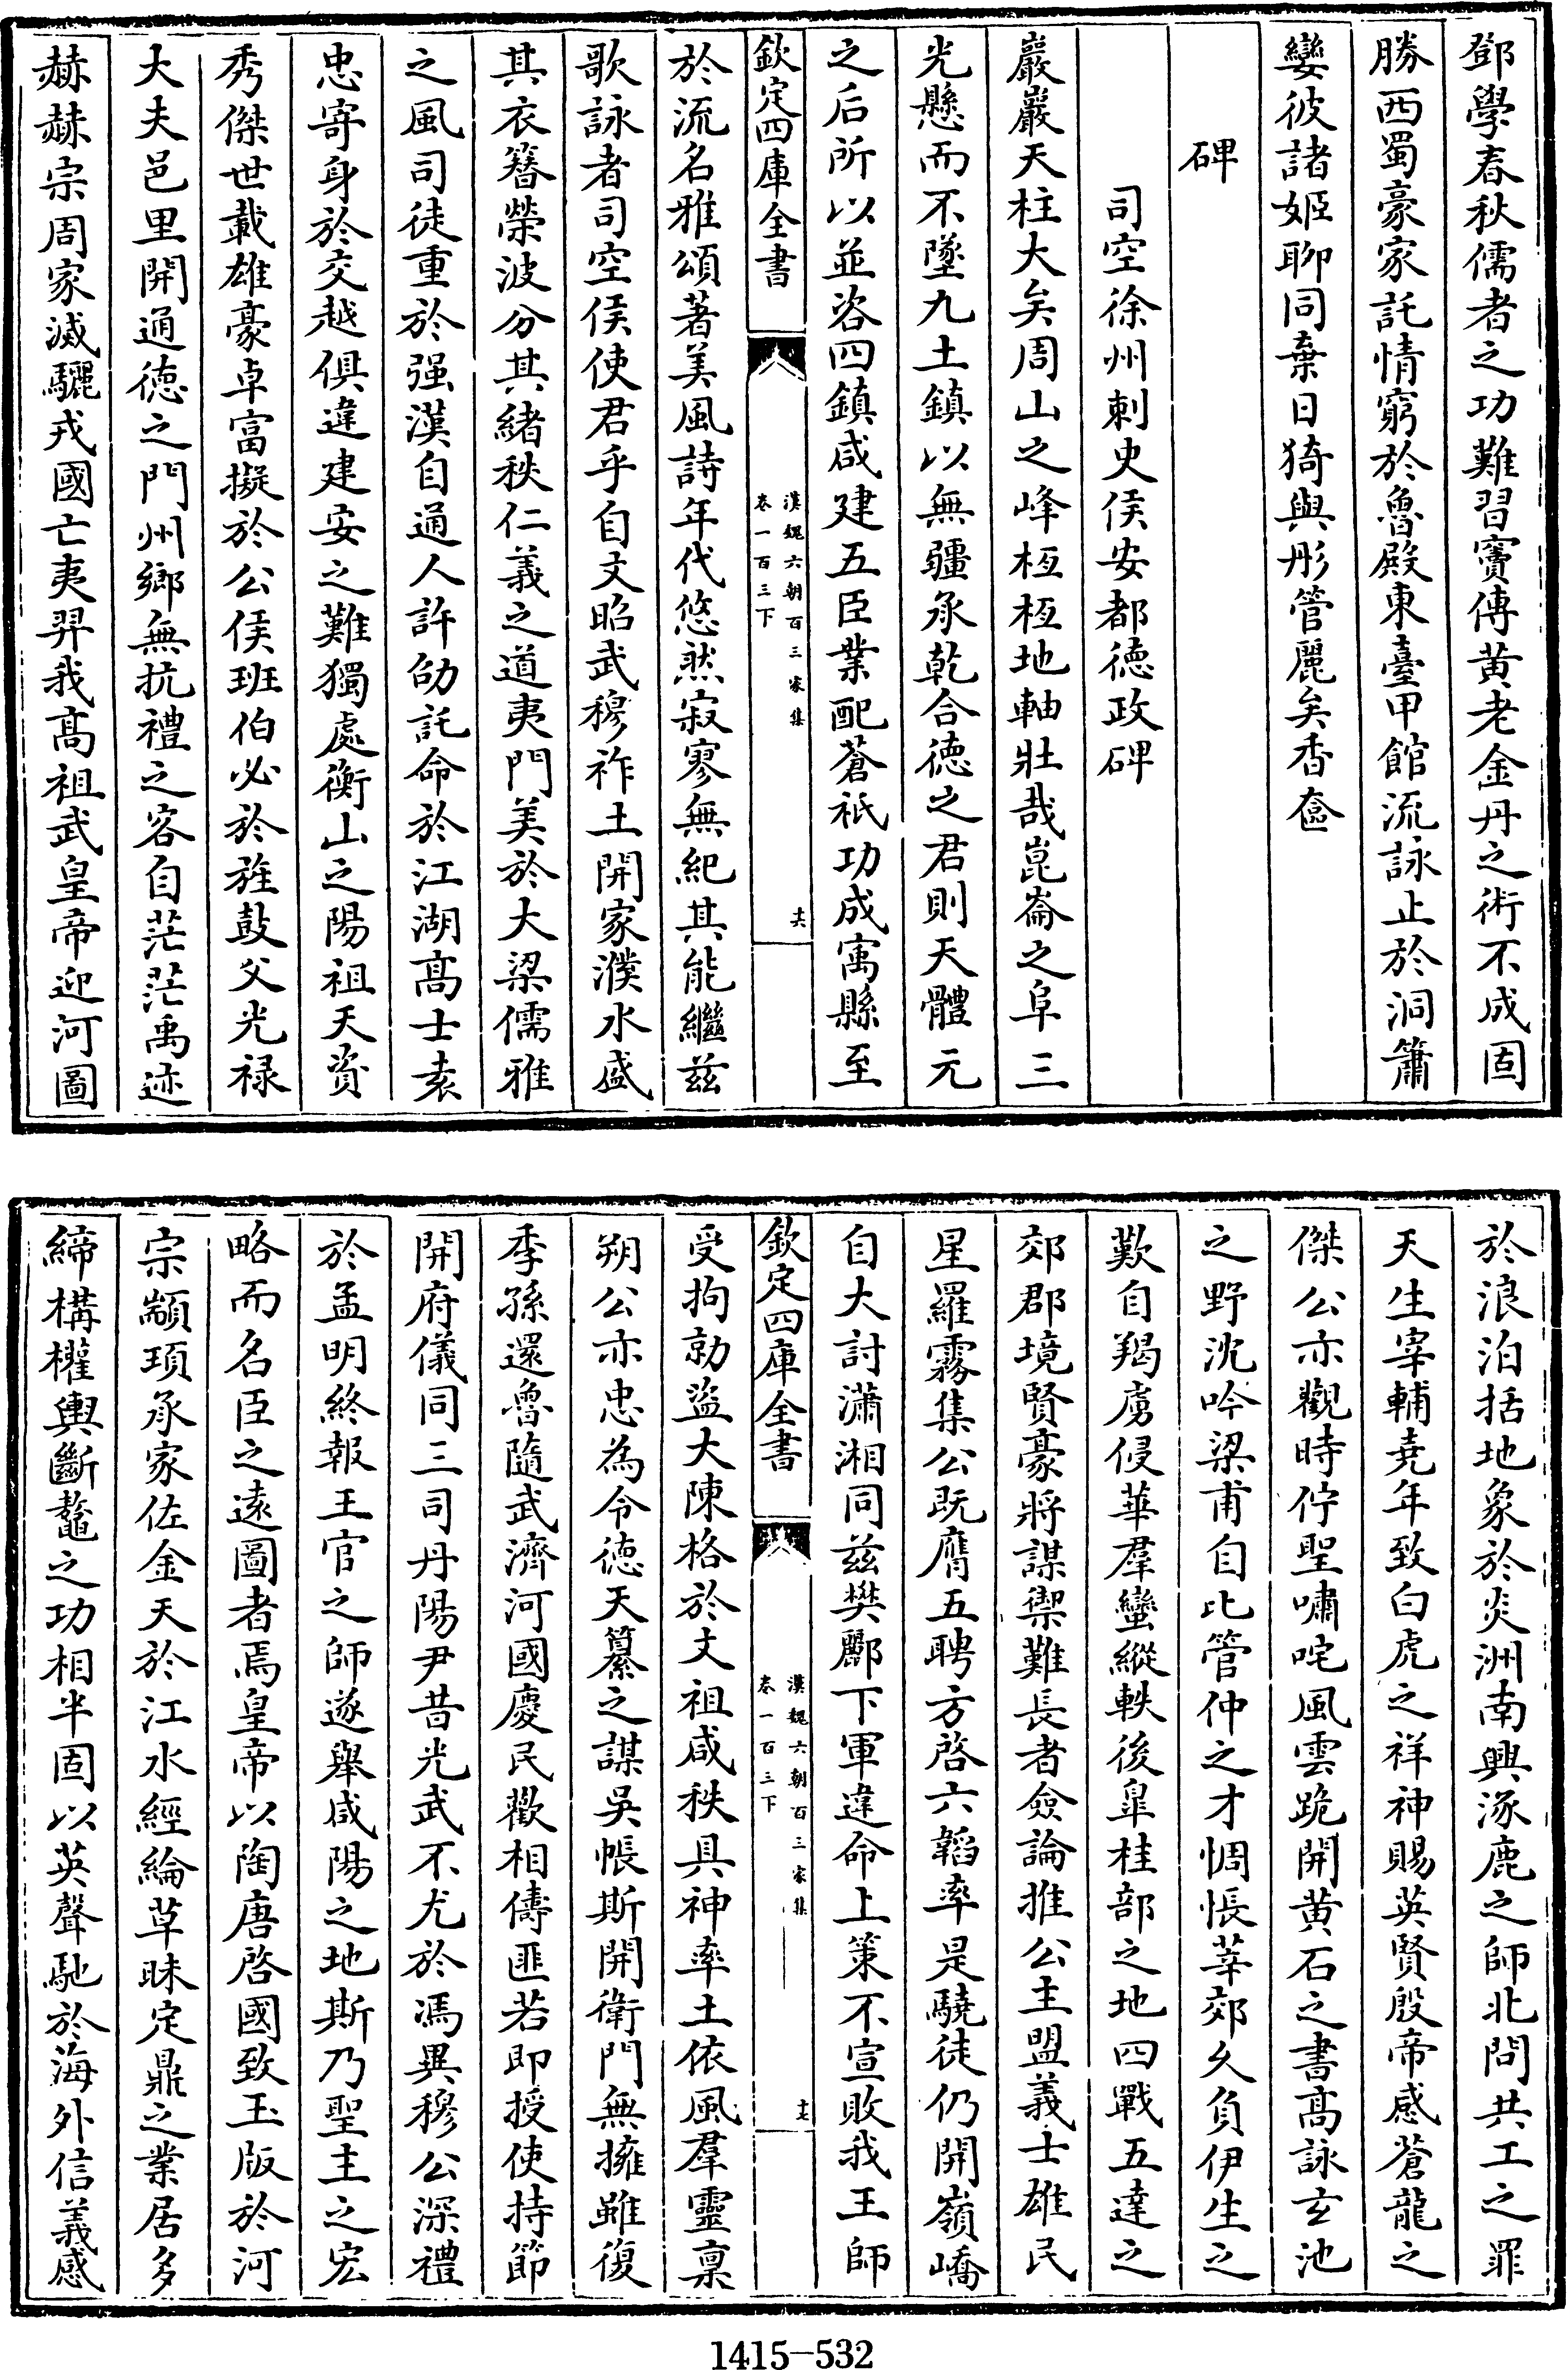 鄧學春秋儒者之功難習竇傅黃老金丹之術不成固
勝西蜀豪家託情窮於魯殿東臺甲館流詠止於洞簫
孌彼諸姬聊同棄日猗與彤管麗矣香奩
碑
司空徐州刺史侯安都德政碑
巖巖天柱大矣周山之峰桓桓地軸壯哉崑崙之阜三
光懸而不墜九土鎮以無疆承乾合德之君則天體元
之后所以並咨四鎮咸建五臣業配蒼祇功成寓縣至
欽定四庫全書
漢魏六朝百三家集
卷一百三下
十六
於流名雅頌著美風詩年代悠然寂寥無紀其能繼兹
歌詠者司空侯使君乎自文昭武穆祚土開家濮水盛
其衣簪滎波分其緒秩仁義之道夷門美於大梁儒雅
之風司徒重於强漢自通人許劭託命於江湖高士袁
忠寄身於交越俱違建安之難獨處衡山之陽祖天資
秀傑世載雄豪卓富擬於公侯班伯必於旌鼓父光禄
大夫邑里開通德之門州鄉無抗禮之客自茫茫禹迹
赫赫宗周家滅驪戎國亡夷羿我高祖武皇帝迎河圖
於浪泊括地象於炎洲南興涿鹿之師北問共工之罪
天生宰輔堯年致白虎之祥神賜英賢殷帝感蒼龍之
傑公亦觀時佇聖嘯咤風雲跪開黄石之書高詠玄池
之野沈吟梁甫自比管仲之才惆悵莘郊久負伊生之
歎自羯虜侵華羣蠻縱軼後臯桂部之地四戰五達之
郊郡境賢豪將謀禦難長者僉論推公主盟義士雄民
星羅霧集公既膺五聘方啓六韜率是驍徒仍開嶺嶠
自大討瀟湘同兹樊酈下軍違命上策不宣敗我王師
欽定四庫全書
漢魏六朝百三家集
卷一百三下
十七
受拘勍盜大陳格於文祖咸秩具神率土依風羣靈禀
朔公亦忠為令德天纂之謀吳帳斯開衛門無擁雖復
季孫還魯隨武濟河國慶民歡相儔匪若即授使持節
開府儀同三司丹陽尹昔光武不尤於馮異穆公深禮
於孟明終報王官之師遂舉咸陽之地斯乃聖主之宏
略而名臣之遠圖者焉皇帝以陶唐啓國致玉版於河
宗顓頊承家佐金天於江水經綸草昧定鼎之業居多
締構權輿斷鼇之功相半固以英聲馳於海外信義感
1415-532